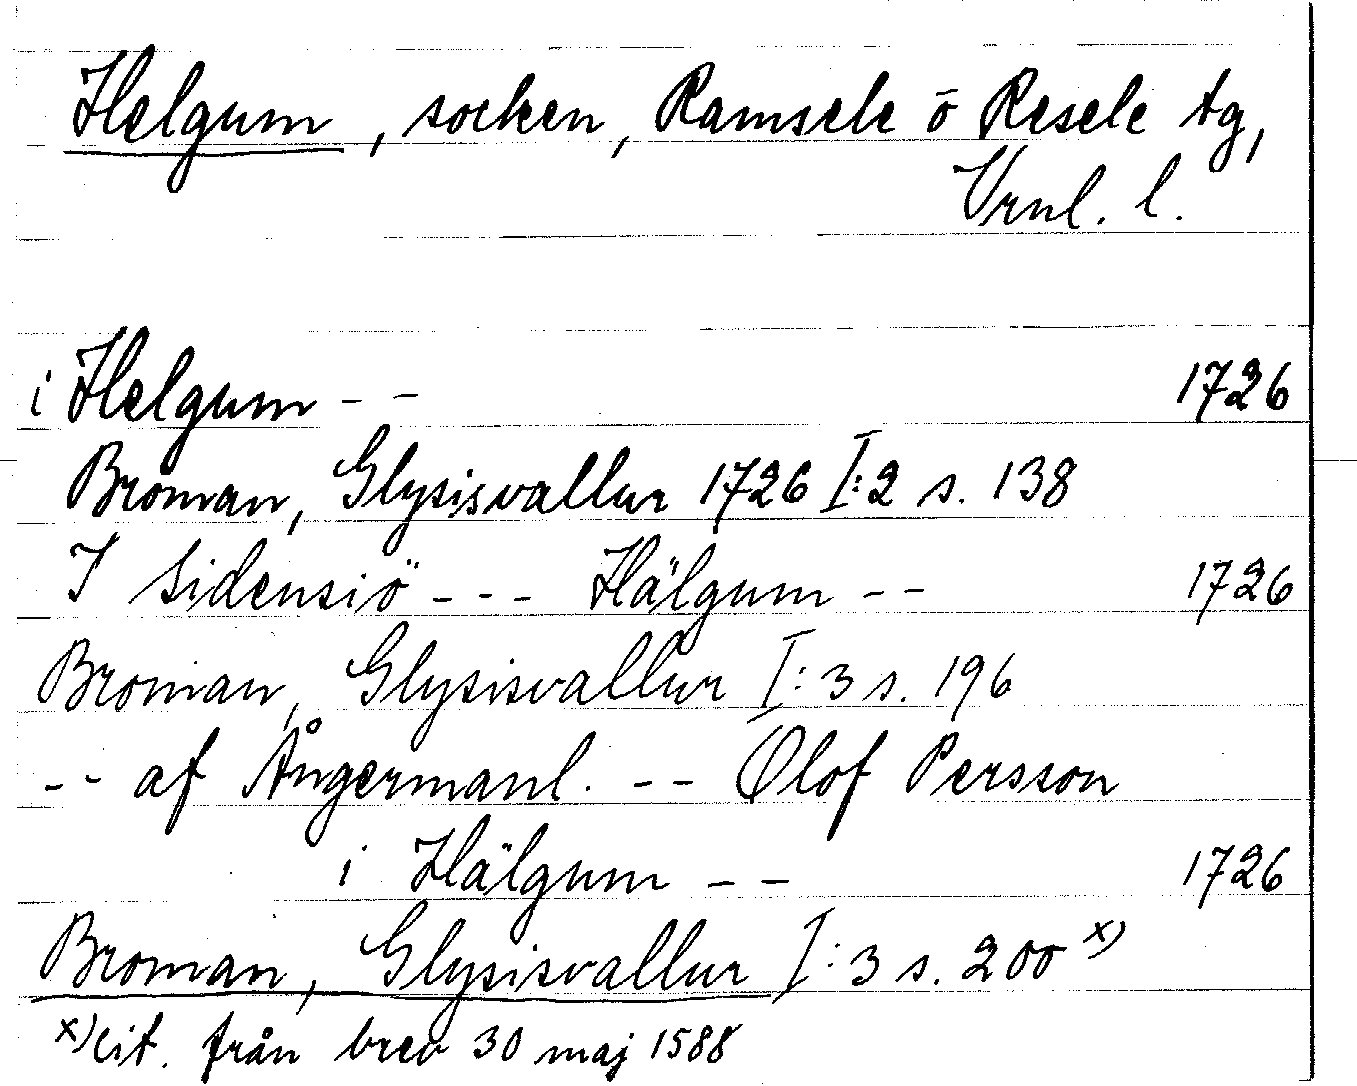 Helgum, socken, Ramsele o Resele tg,
Vrnl. l.
i Helgum - - 1726
Broman, Glysisvallur 1726 I:2 s. 138
I Sidensiö - - - Hälgum - - 1726
Broman, Glysisvallur I:3 s. 196
- - af Ångermanl. - - Olof Persson
i Hälgum - - 1726
Broman, Glysisvallur I:3 s. 200 x)
x) cit. från brev 30 maj 1588